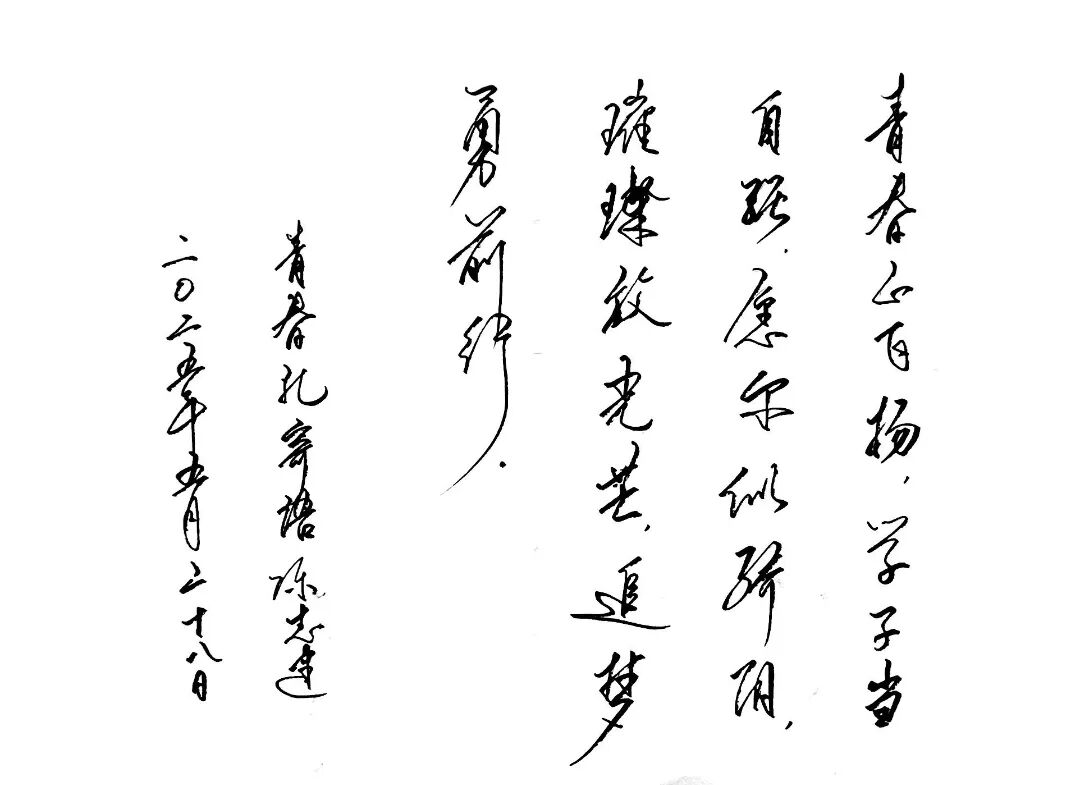 青春正百扬，学子当
自强.愿尔似骄阳，
璀璨放光芒，追梦
勇前行.
青春礼寄语 陈志建
二〇二五年五月二十八日